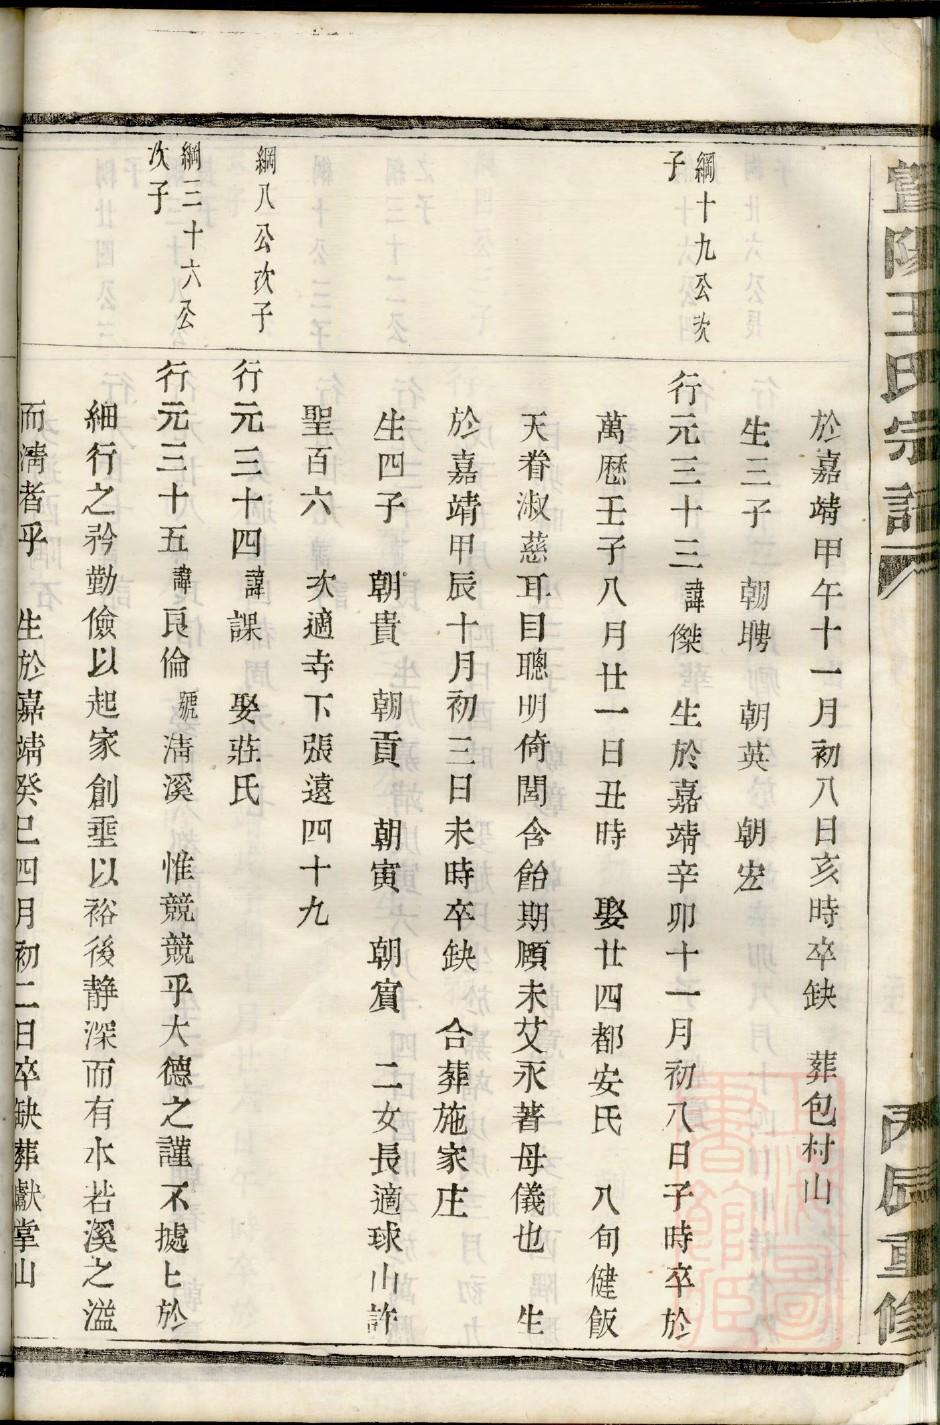 暨陽王氏宗譜
丙辰重修
於嘉靖甲午十一月初八日亥時卒缺 葬包村山
生三子 朝聘 朝英 朝宏
綱十九公次
子
行元三十三諱傑 生於嘉靖辛卯十一月初八日子時卒於
萬歷壬子八月廿一日丑時 娶廿四都安氏 八旬健飯
天眷淑慈耳目聰明倚閭含飴期頤未艾永著母儀也 生
於嘉靖甲辰十月初三日未時卒缺 合葬施家庄
生四子 朝貴 朝貢 朝寅 朝賔 二女長適球山許
聖百六 次適寺下張遠四十九
綱八公次子
行元三十四諱課 娶莊氏
綱三十六公
次子
行元三十五諱良倫號清溪 惟競競乎大德之謹不摅𠧒於
細行之矜勤儉以起家創垂以裕後静深而有水若溪之溢
而清者乎 生於嘉靖癸巳四月初二日卒缺葬獻掌山